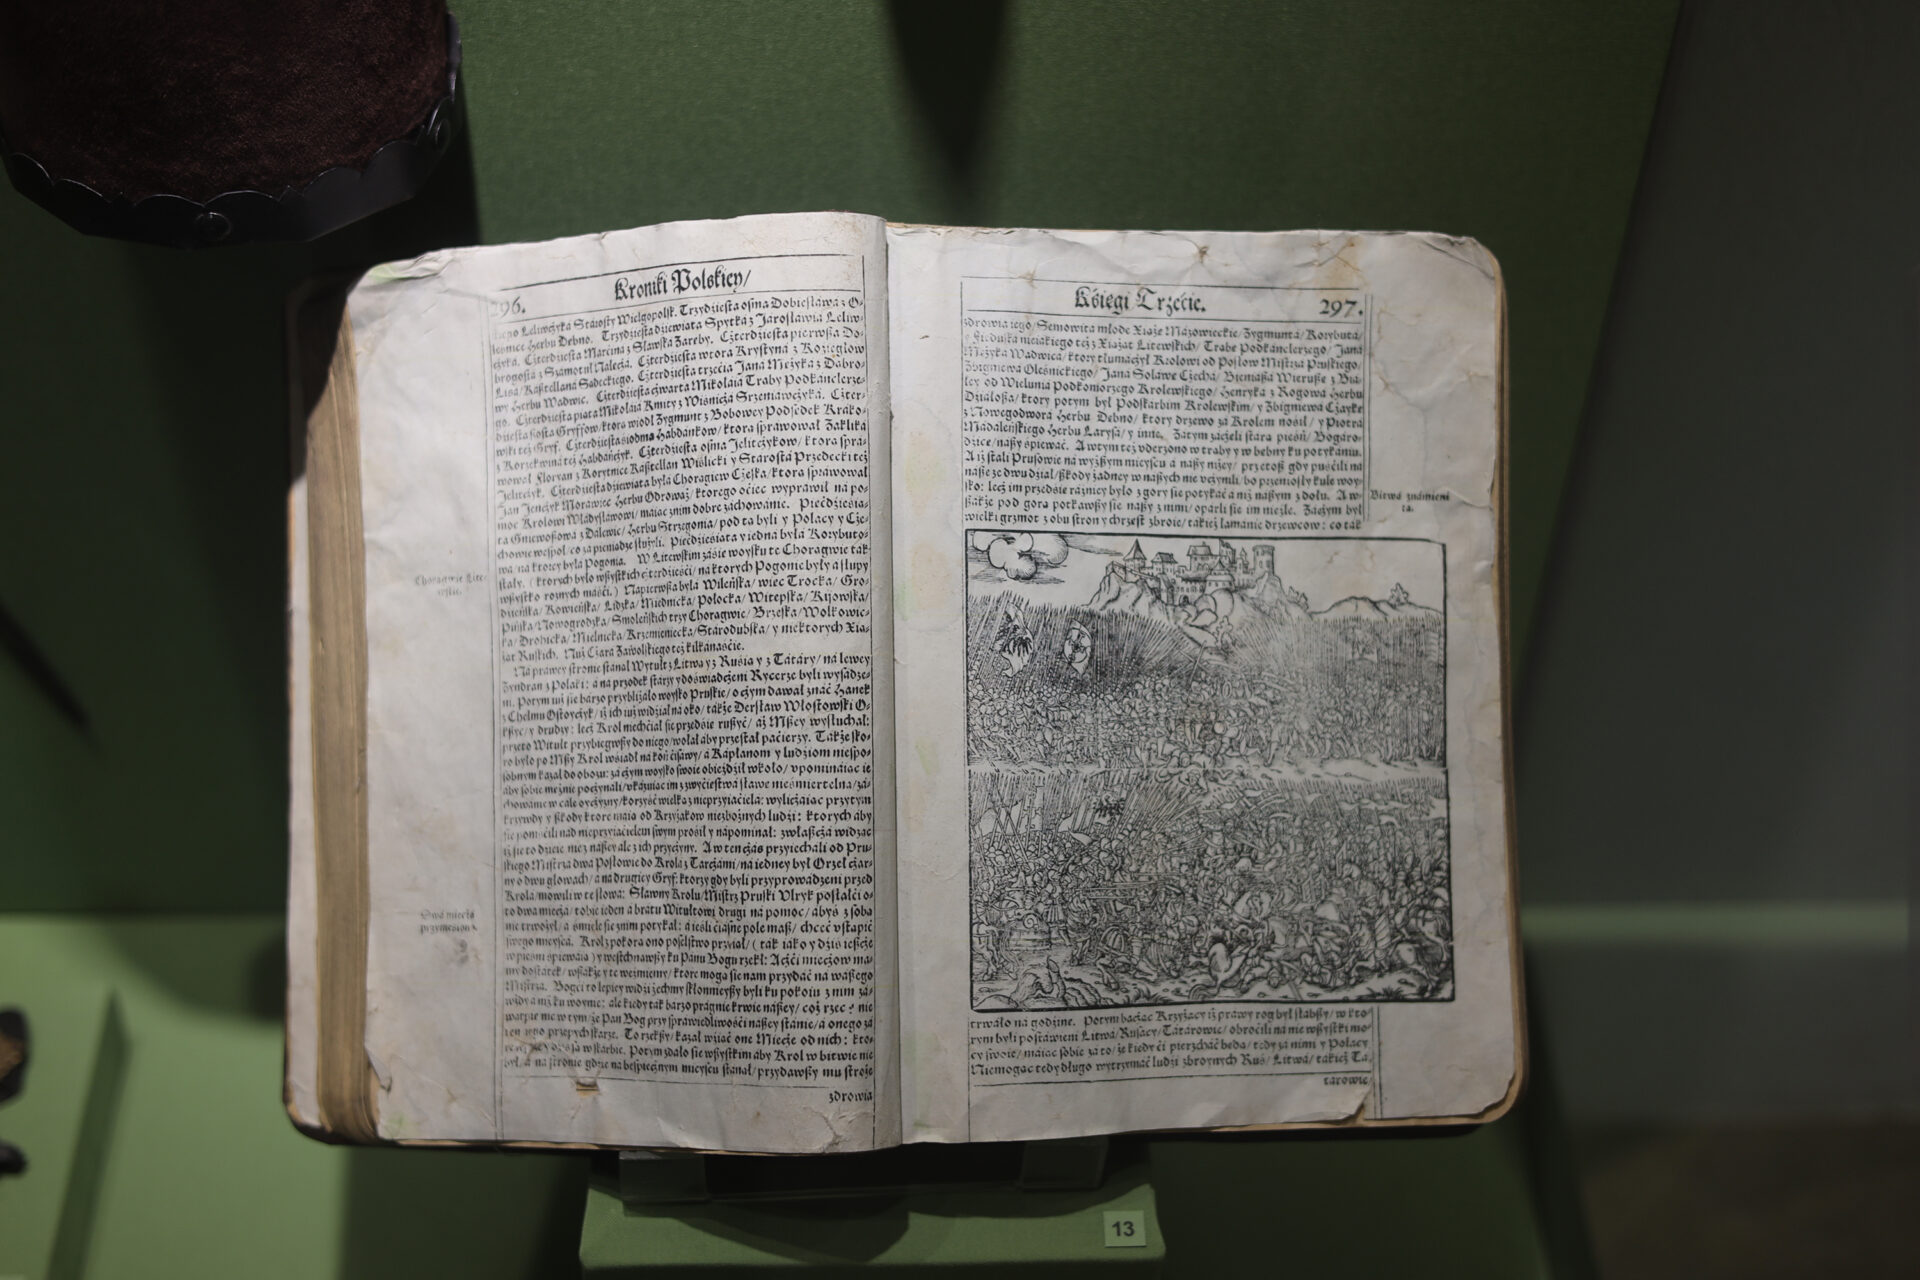 296.
Kroniki Polskiey/
Leliwcżyka Stárosty Wielgopolsk. Trzydziesta osma Dobiesławá z O-
Herbu Dębno. Trzydziesta dziewiata Spytká z Jarosławia Leliw-
cżyka. Czterdziesta Marcina z Sławská Zaręby. Czterdziesta pierwsza Do-
brogostá z Számotuł Nálęcżá. Czterdziesta wtora Krystyná z Koziegłow
Lisá/ Kásztellaná Sądeckiego. Czterdziesta trzecia Janá Mężyká z Dąbro-
wy Herbu Wádwic. Czterdziesta cżwarta Mikołáiá Trąby Podkánclerze-
go. Czterdziesta piąta Mikołáiá Kmity z Wiśnicżá Srzeniawcżyká. Czter-
dziesta szosta Gryffow/ ktorą wiodł Zygmunt z Bobowey Podsędek Kráko-
wski też Gryf. Czterdziesta siodma Hábdánkow/ ktorą spráwował Zaklika
z Korzekwiná też Hábdáńcżyk. Czterdziesta osma Jelitcżykow/ ktorą sprá-
wował Floryan z Korytnice Kásztellan Wislicki y Stárostá Przedecki też
Jelitcżyk. Czterdziesta dziewiata byłá Chorągiew Czeská/ ktorą spráwował
Jan Jencżyk Moráwiec Herbu Odrowąż/ ktorego ociec wypráwił ná po-
moc Krolowi Władysławowi/ máiąc z nim dobre záchowánie. Pięćdziesią-
ta Gniewoszowá z Dálewic/ Herbu Strzegomiá/ pod tą byli y Polacy y Cze-
chowie wespoł/ co zá pieniądze służyli. Pięćdziesiąta y iedná byłá Korybuto-
wá/ ná ktorey byłá Pogonia. W Litewskim zásię woysku te Chorągwie ták
stały. (ktorych było wszystkich cżterdzieści/ ná ktorych Pogonie były á słupy
wszystko roznych máści.) Naprzod byłá Wileńska/ więc Trocka/ Gro-
dzieńska/ Kowieńska/ Lidzka/ Miednicka/ Połocka/ Witepska/ Kijowska/
Pińska/ Nowogrodzka/ Smoleńskich trzy Chorągwie/ Brzeska/ Wołkowic-
ka/ Drohicka/ Mielnicka/ Krzemieniecka/ Stárodubska/ y niektorych Xią-
żąt Ruskich. Nuż Czárá Zawolskiego też kilkánaście.
Chorągwie Lite-
wskie.
Ná práwey stronie stánął Wytułt z Litwą y z Rusią y z Tátáry/ ná lewey
Zyndran z Polaki: á ná przodek stárszy y doświádcżeni Rycerze byli wysádze-
ni. Potym iuż się bárzo przybliżáło woysko Pruskie/ o cżym dawał znáć Hánek
z Chełmu Ostoycżyk/ iż ich iuż widział ná oko/ tákże Dersław Włostowski O-
kszyc/ y drudzy: lecż Krol niechciał się przedsię ruszyć/ áż Mszey wysłuchał:
przeto Witułt przybiegwszy do niego/ wołał áby przestał pacierzy. Tákże sko-
ro było po Mszy Krol wsiadł ná koń cisáwy/ á Kápłanom y ludziom niespo-
sobnym kazał do obozu: zá cżym woysko swoie obieżdził wkoło/ vpomináiąc ie
áby sobie mężnie pocżynáli/ vkázuiąc im z zwycięstwá sławę nieśmiertelną/ zá-
chowánie w cále oycżyzny/ korzyść wielką z nieprzyiacielá: wylicżáiąc przytym
krzywdy y szkody ktore máią od Krzyżakow niezbożnych ludzi: ktorych áby
się pomścili nád nieprzyiacielem swym prosił y nápominał: zwłaszcżá widząc
iż się to dzieie nie z nászey ále z ich przycżyny. A w ten cżás przyiecháli od Pru-
skiego Mistrzá dwá Posłowie do Krolá z Tarcżámi/ ná iedney był Orzeł cżár-
ny o dwu głowách/ á ná drugiey Gryf: ktorzy gdy byli przyprowádzeni przed
Krolá/ mowili w te słowá: Sławny Krolu/ Mistrz Pruski Vlryk posłał ci o-
to dwá miecżá/ tobie ieden á brátu Witułtowi drugi ná pomoc/ ábyś z sobą
nie trwożył/ á śmiele się z nim potykał: á iesli ciásne pole masz/ chce vstąpić
swego mieyscá. Krol z pokorą ono poselstwo przyiął/ (ták iáko y dziś ieszcże
w pieśni śpiewáią) y westchnąwszy ku Pánu Bogu rzekł: Acżci miecżow má-
my dostátek/ wszákże y te weźmiemy/ ktore mogą się nam przydáć ná wászego
Mistrzá. Bog ci to lepiey widzi żechmy skłonnieyszy byli ku pokoiu z nim zá-
wżdy á niż ku woynie: ále kiedy ták bárzo prágnie krwie nászey/ coż rzec? nie
wątpię nic w tym/ że Pan Bog przy spráwiedliwości nászey stánie/ á onego zá
ten iego przepych skarze. To rzekszy/ kazał wziąć one Miecże od nich: kto-
Potym zdáło się wszystkim áby Krol w bitwie nie
był/ á ná stronie gdzie ná bespiecżnym mieyscu stánął/ przydawszy mu straże
zdrowia
Dwá miecżá
przyniesione.
Księgi Trzecie.
297.
zdrowia iego/ Semowitá młode Xiążę Mázowieckie/ Zygmuntá/ Korybutá/
y Fieduszká nieiákiego też z Xiążąt Litewskich/ Trąbę Podkánclerzego/ Janá
Mężyká Wádwicá/ ktory tłumácżył Krolowi od Posłow Mistrzá Pruskiego/
Zbigniewá Oleśnickiego/ Janá Soláwę Czechá/ Bieniaszá Wieruszę z Bia-
ley od Wielunia Podkomorzego Krolewskiego/ Henryká z Rogowá Herbu
Działoszá/ ktory potym był Podskárbim Krolewskim/ y Zbigniewá Czaykę
z Nowegodworá Herbu Dębno/ ktory drzewo zá Krolem nosił/ y Piotrá
Mádáleńskiego Herbu Láryszá/ y inne. Zátym zácżęli stárą pieśń/ Bogaro-
dzice/ nászy śpiewáć. A w tym też vderzono w trąby y w bębny ku potykániu.
A iż stali Prusowie ná wyższym mieyscu á nászy niżey/ przetoż gdy puścili ná
násze ze dwu dział/ szkody żadney w nászych nie vcżynili/ bo przeniosły kule woy-
sko: lecż im przedsię ráźniey było z gory się potykáć á niż nászym z dołu. A w-
szákże pod gorą potkawszy się nászy z nimi/ opárli się im nieźle. Zácżym był
wielki grzmot z obu stron y chrzęst zbroie/ tákież łamánie drzewcow: co ták
Bitwá známieni
ta.
trwáło ná godzinę. Potym bacżąc Krzyżacy iż práwy rog był słabszy/ w kto-
rym byli postáwieni Litwá/ Rusacy/ Tátárowie/ obrocili ná nie wszystkę mo-
cy swoie/ máiąc sobie zá to/ że kiedy ci pierzcháć będą/ tedy zá nimi y Polacy.
Niemogąc tedy długo wytrzymáć ludzi zbroynych Ruś/ Litwá/ tákież Tá-
tárowie/
13